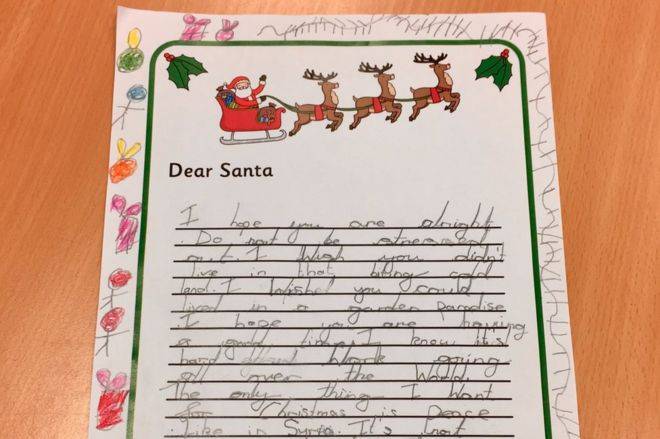 Dear Santa
I hope you are alright
. Do not be stressed
out. I wish you didn't
live in that biting cold
land. I wished you could
lived in a garden paradise
. I hope you are having
a good time. I know it's
hard work going
all over the World.
The only thing I want
for Christmas is peace
like in Syria. It's not